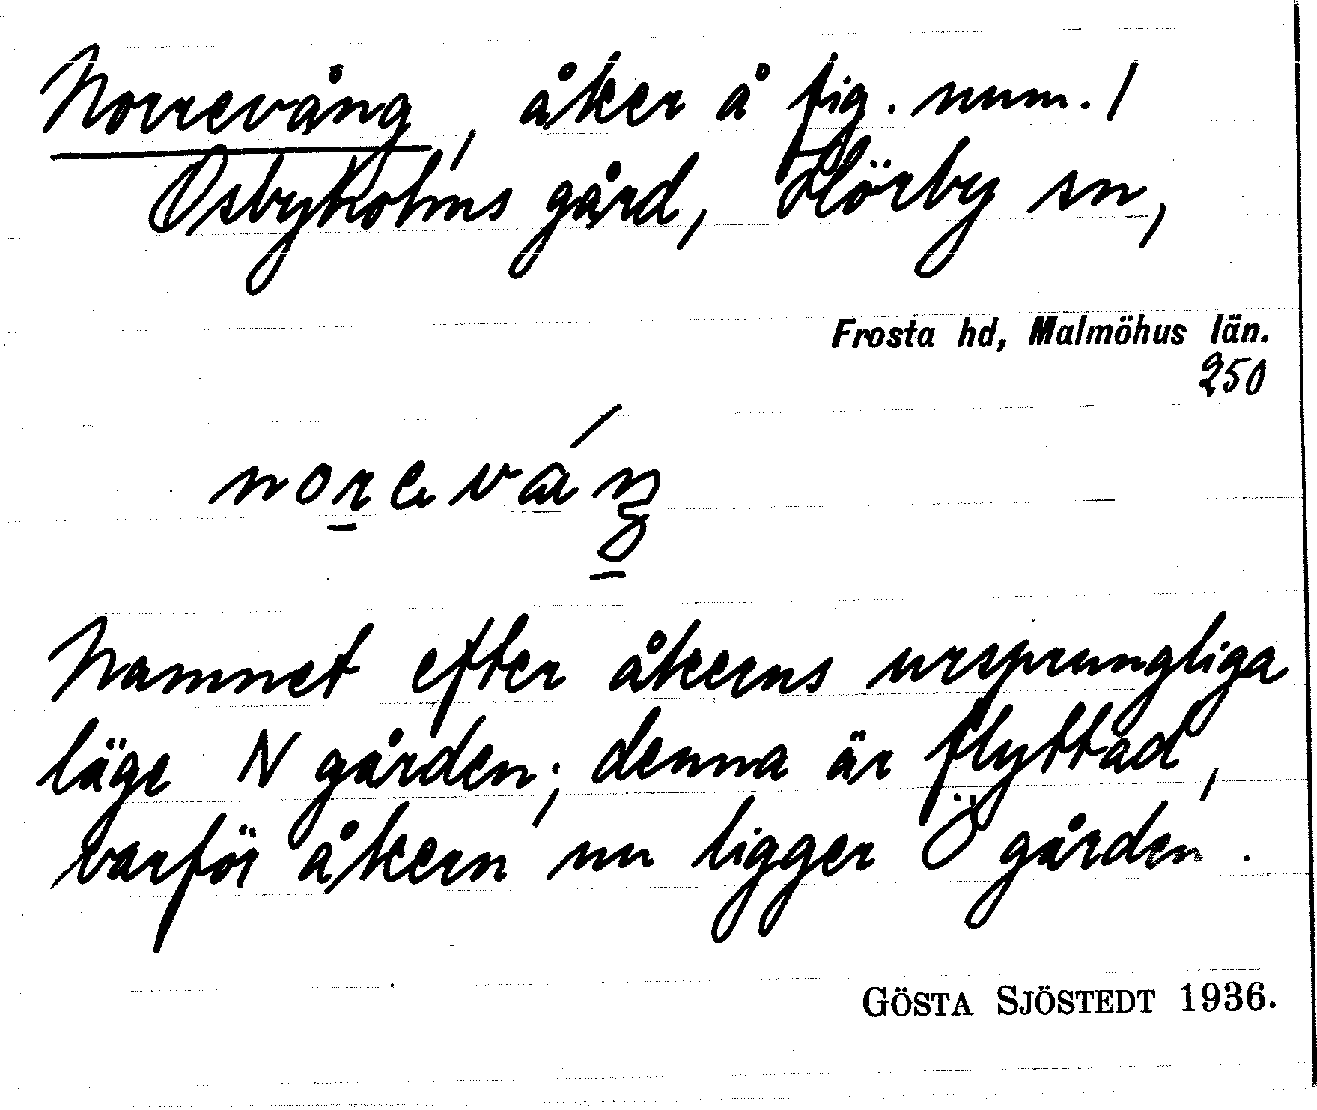 Norrevång, åker å fig. num. 1
Osbyholms gård, Hörby sn,
Frosta hd, Malmöhus län.
250
Namnet efter åkerns ursprungliga
läge N gården; denna är flyttad,
varför åkern nu ligger Ö gården.
GÖSTA SJÖSTEDT 1936.